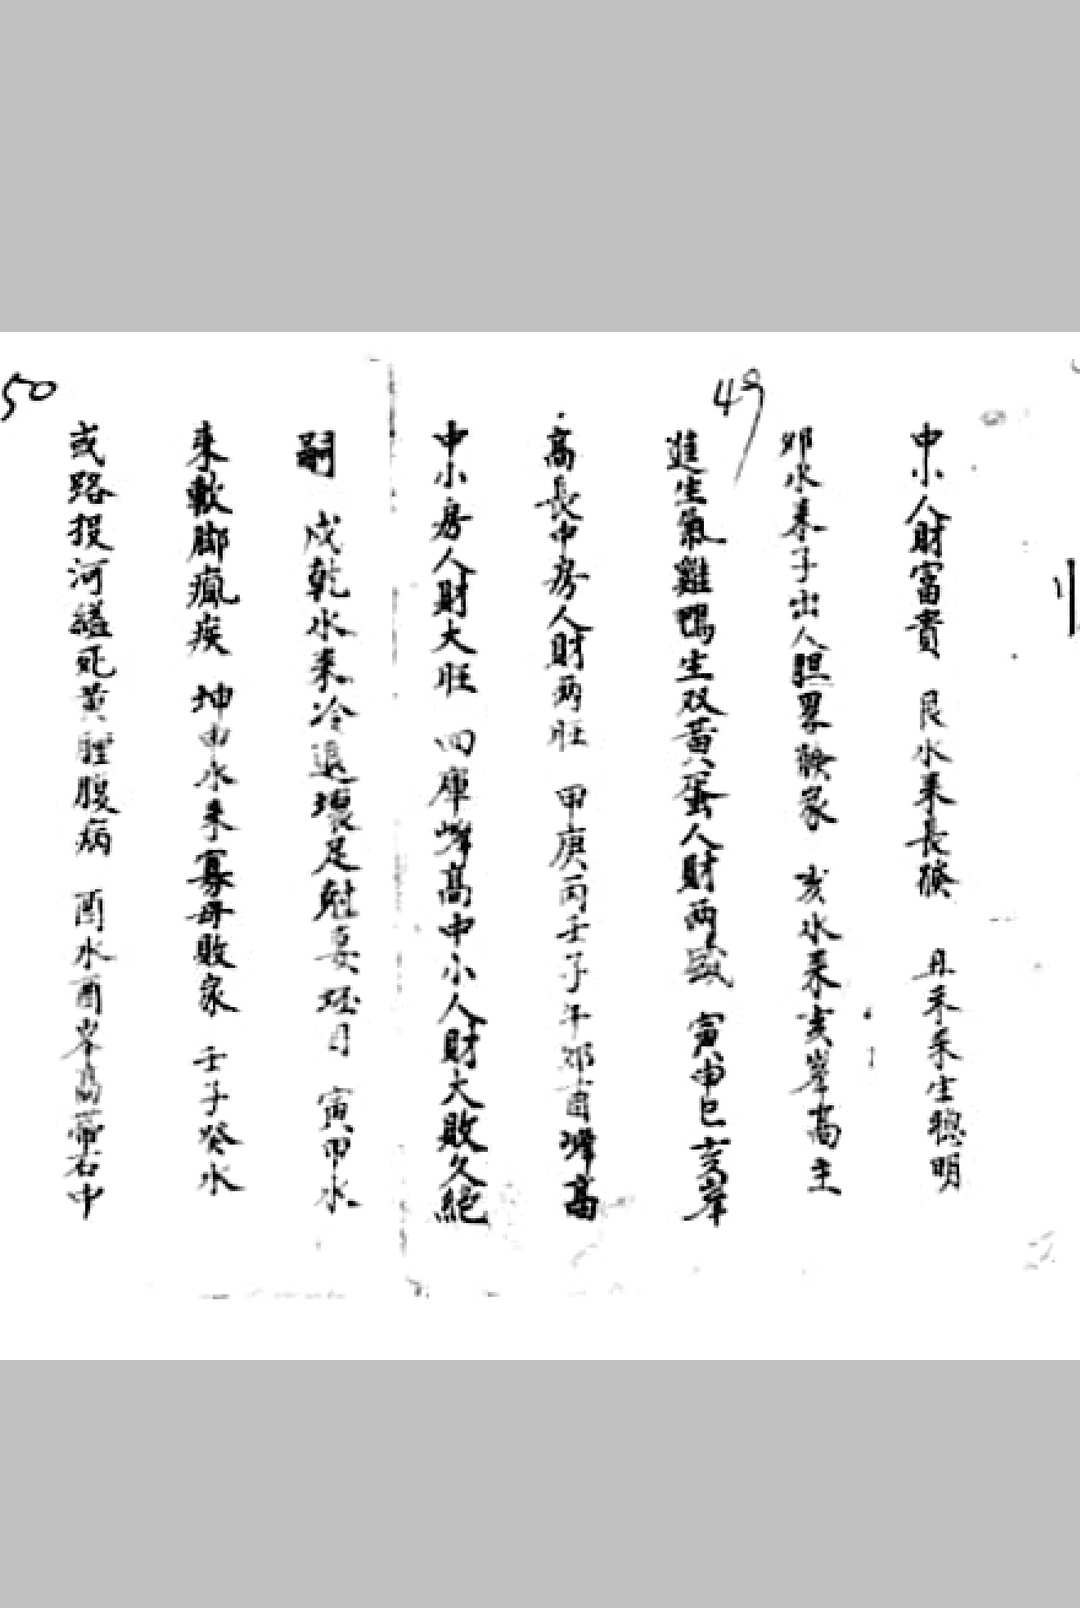 49
中小人財富貴 艮水来長發 丑未来生聰明
卯水来子出人胆畧發家 亥水来亥峯高主
進生氣雞鴨生双黃蛋人財兩盛 寅申巳亥峯
高長中房人財两旺 甲庚丙壬子午卯酉峰高
中小房人財大旺 四庫峰高中小人財大敗久絕
50
嗣 戌乾水来冷退壞足射妻 目 寅甲水
来軟脚瘋疾 坤申水来寡母敗家 壬子癸水
或路投河縊死黃腫腹病 酉水酉峯高 右中